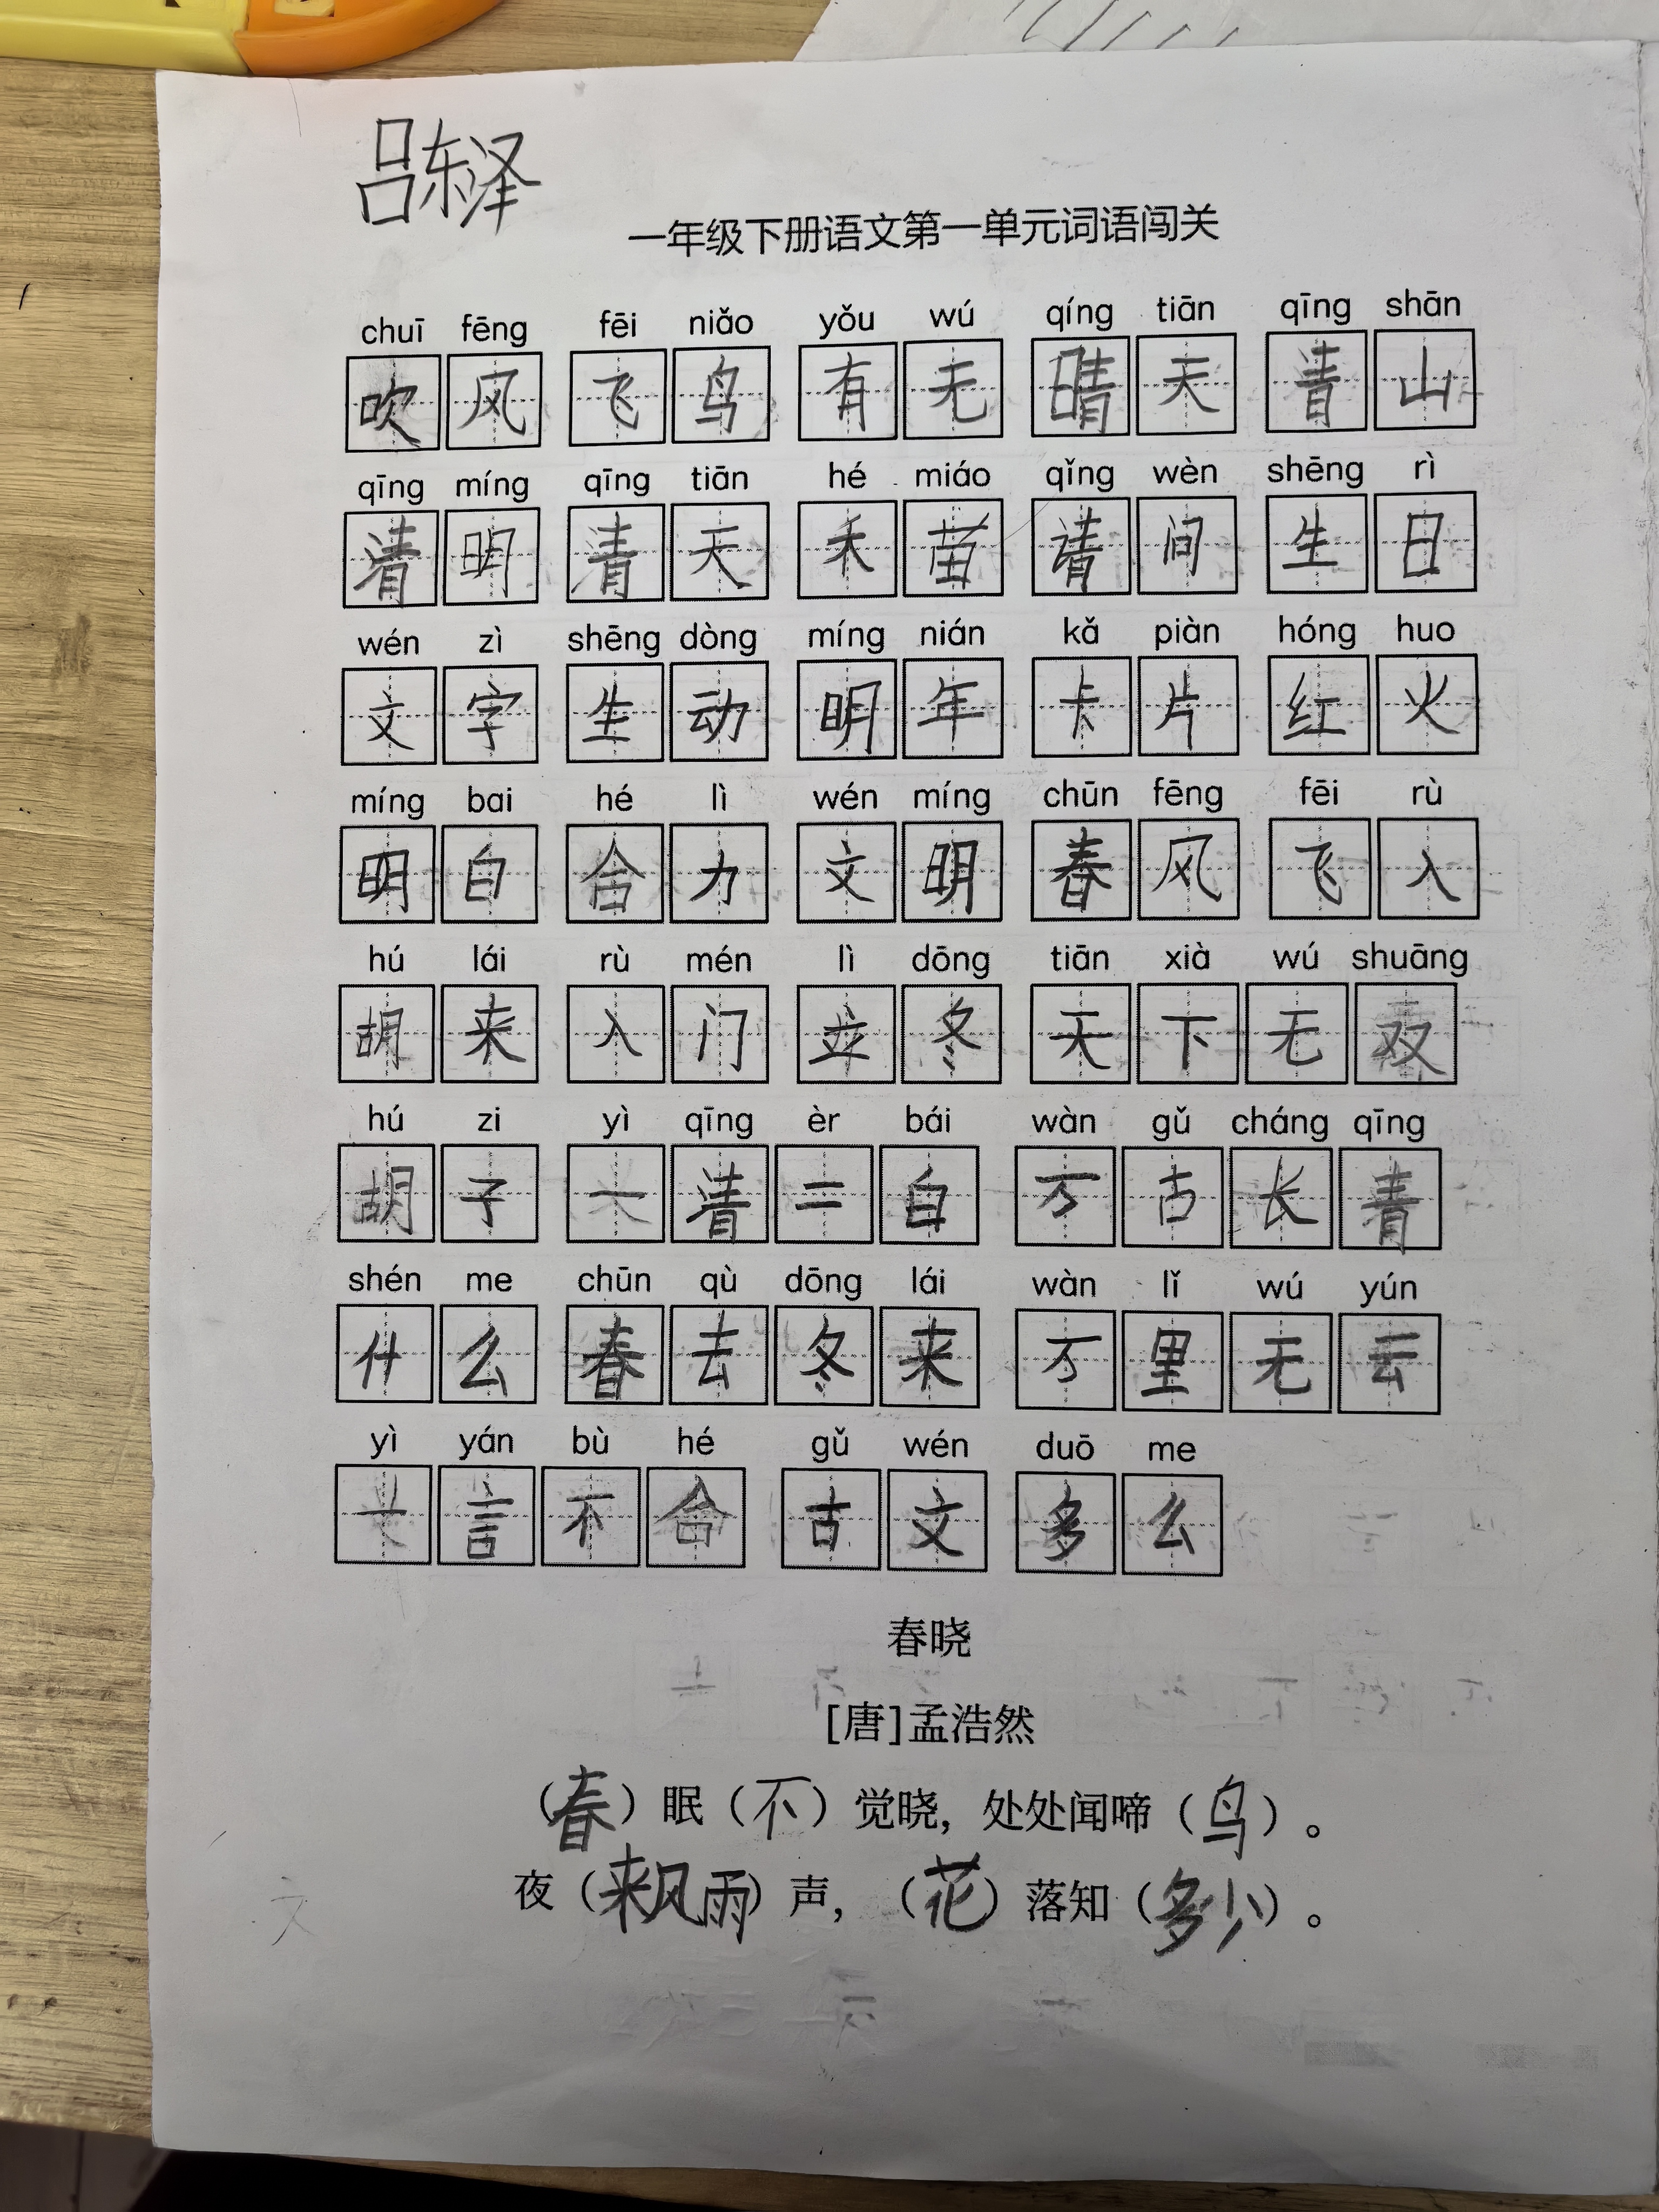 吕东泽
一年级下册语文第一单元词语闯关
chuī fēng fēi niǎo yǒu wú qíng tiān qīng shān
吹风 飞鸟 有无 晴天 青山
qīng míng qīng tiān hé miáo qǐng wèn shēng rì
清明 清天 禾苗 请问 生日
wén zì shēng dòng míng nián kǎ piàn hóng huo
文字 生动 明年 卡片 红火
míng bai hé lì wén míng chūn fēng fēi rù
明白 合力 文明 春风 飞入
hú lái rù mén lì dōng tiān xià wú shuāng
胡来 入门 立冬 天下无双
hú zi yì qīng èr bái wàn gǔ cháng qīng
胡子 一清二白 万古长青
shén me chūn qù dōng lái wàn lǐ wú yún
什么 春去冬来 万里无云
yì yán bù hé gǔ wén duō me
一言不合 古文 多么
春晓
[唐]孟浩然
(春)眠(不)觉晓,处处闻啼(鸟)。
夜(来风雨)声,(花)落知(多少)。
文